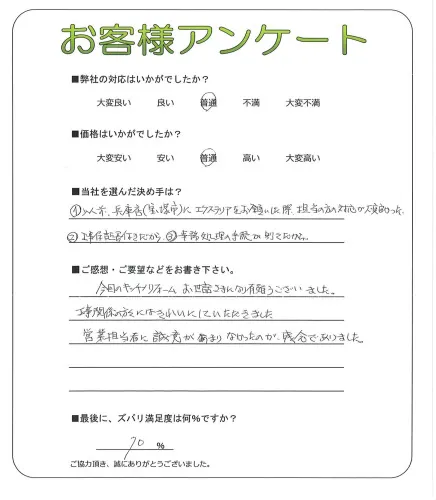 お客様アンケート
■弊社の対応はいかがでしたか？
大変良い 良い 普通 不満 大変不満
■価格はいかがでしたか？
大変安い 安い 普通 高い 大変高い
■当社を選んだ決め手は？
① 兵庫店(宝塚市)に エクステリアをお願いした際、担当の方の対応が良かった
②工事保証書付きだから ③事務処理の手際が
■ご感想・ご要望などをお書き下さい。
今回のキッチンリフォーム お世話さまになり有難うございました。
工事関係の方にはきれいにしていただきました
営業担当者に誠意があまりなかったのが、残念でありました。
■最後に、ズバリ満足度は何％ですか？
70 ％
ご協力頂き、誠にありがとうございました。